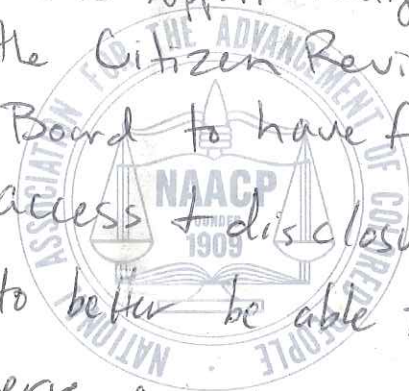 the Citizen Revi
Board to have f
access + disclosu
to better be able
NATIONAL ASSOCIATION FOR THE ADVANCEMENT OF COLORED PEOPLE
NAACP
FOUNDED
1909